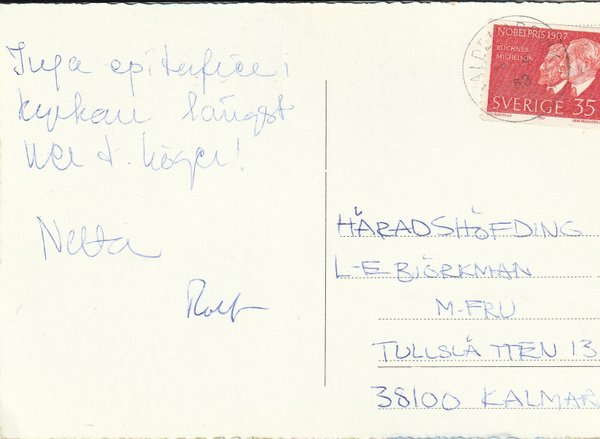 Inga epitafier i
kyrkan längst
ner t. höger!
Netta
Rolf
NOBELPRIS 1907
BUCHNER
MICHELSON
SVERIGE 35
HÄRADSHÖFDING
L-E BJÖRKMAN
M-FRU
TULLSLÄTTEN 13
38100 KALMAR